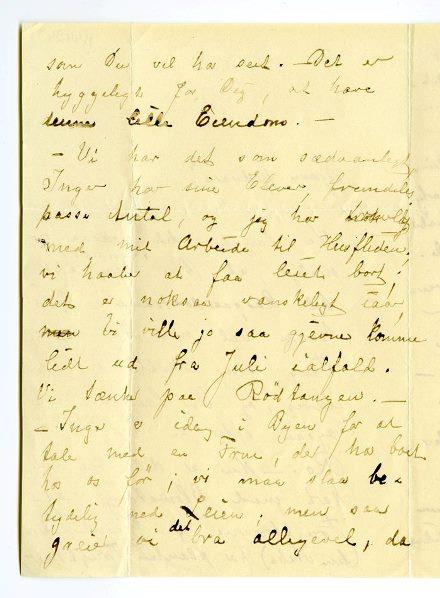 som Du vil ha seet. — Det er
hyggeligt for Dig, at have
denne lille Eiendom. —
— Vi har det som sædvanligt,
Inger har sine Elever, fremdeles
passe Antal, og jeg har
med mit Arbeide til Husfliden;
vi haaber at faa leiet bort!
det er noksaa vanskeligt iaar,
men vi ville jo saa gjerne komme
lidt ud fra Juli ialfald.
Vi tænke paa Rødtangen. —
— Inger er idag i Byen for at
tale med en Frue, der har boet
hos os før; vi maa slaa be-
tydelig ned Leien; men saa
greier vi det bra alligevel, da